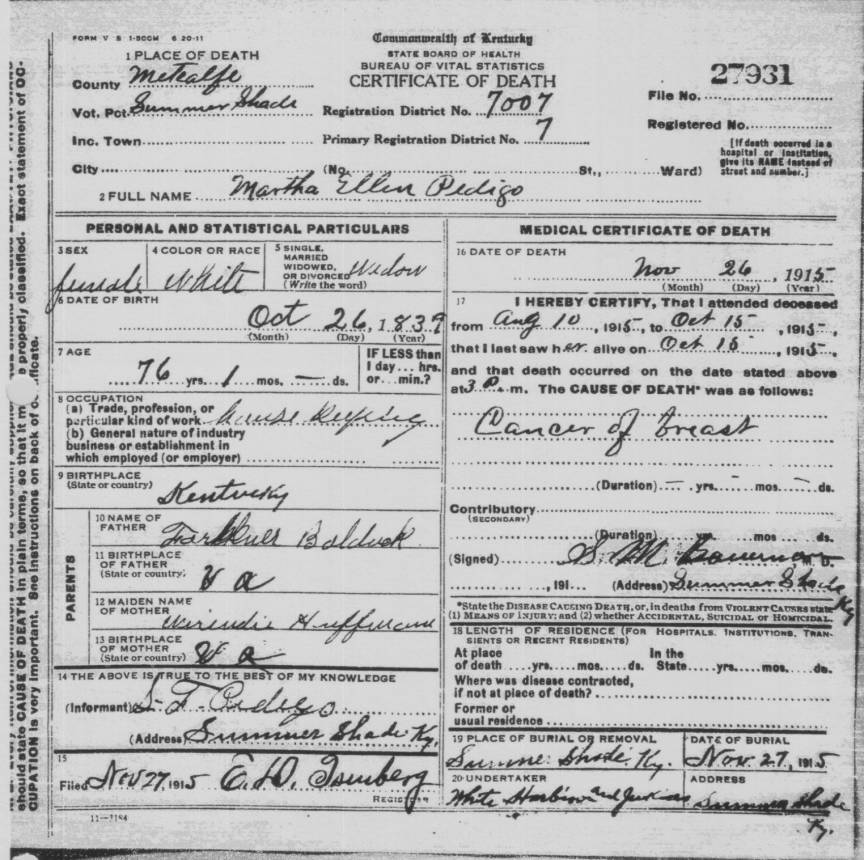 FORM V S 1-500M 6 20-11
Commonwealth of Kentucky
STATE BOARD OF HEALTH
BUREAU OF VITAL STATISTICS
CERTIFICATE OF DEATH
1 PLACE OF DEATH
County Metcalfe
Vot. Pct. Summer Shade
Inc. Town
City (No. St., Ward)
Registration District No. 7007
Primary Registration District No. 7
27931
File No.
Registered No.
[If death occurred in a
hospital or institution,
give its NAME instead of
street and number.]
2 FULL NAME Martha Ellen Pedigo
PERSONAL AND STATISTICAL PARTICULARS
3 SEX
female
4 COLOR OR RACE
White
5 SINGLE,
MARRIED
WIDOWED,
OR DIVORCED Widow
(Write the word)
6 DATE OF BIRTH
Oct 26, 1839
(Month) (Day) (Year)
7 AGE
76 yrs. 1 mos. – ds.
IF LESS than
1 day ... hrs.
or ... min.?
8 OCCUPATION
(a) Trade, profession, or
particular kind of work House Keeping
(b) General nature of industry
business or establishment in
which employed (or employer)
9 BIRTHPLACE
(State or country)
Kentucky
PARENTS
10 NAME OF
FATHER
11 BIRTHPLACE
OF FATHER
(State or country)
Va
12 MAIDEN NAME
OF MOTHER
Huffman
13 BIRTHPLACE
OF MOTHER
(State or country)
Va
14 THE ABOVE IS TRUE TO THE BEST OF MY KNOWLEDGE
(Informant) S. T. Pedigo
(Address) Summer Shade Ky.
15
Filed Nov 27, 1915 E. D. Isenberg
REGISTRAR
11—7184
MEDICAL CERTIFICATE OF DEATH
16 DATE OF DEATH
Nov 26, 1915
(Month) (Day) (Year)
17 I HEREBY CERTIFY, That I attended deceased
from Aug 10, 1915, to Oct 15, 1915,
that I last saw her alive on Oct 15, 1915,
and that death occurred on the date stated above
at 3 P. m. The CAUSE OF DEATH* was as follows:
Cancer of breast
(Duration) – yrs. – mos. – ds.
Contributory
(SECONDARY)
(Duration) mos ds.
(Signed) S. M. M. D.
, 191 (Address) Summer Shade Ky
*State the DISEASE CAUSING DEATH, or, in deaths from VIOLENT CAUSES state
(1) MEANS OF INJURY; and (2) whether ACCIDENTAL, SUICIDAL OR HOMICIDAL.
18 LENGTH OF RESIDENCE (FOR HOSPITALS, INSTITUTIONS, TRANSIENTS OR RECENT RESIDENTS)
At place In the
of death yrs. mos. ds. State yrs. mos. ds.
Where was disease contracted,
if not at place of death?
Former or
usual residence
19 PLACE OF BURIAL OR REMOVAL
Summer Shade, Ky.
DATE OF BURIAL
Nov. 27, 1915
20 UNDERTAKER
White and
ADDRESS
Summer Shade
Ky.
properly classified. Exact statement of OC-
should state CAUSE OF DEATH in plain terms, so that it
CUPATION is very important. See instructions on back of